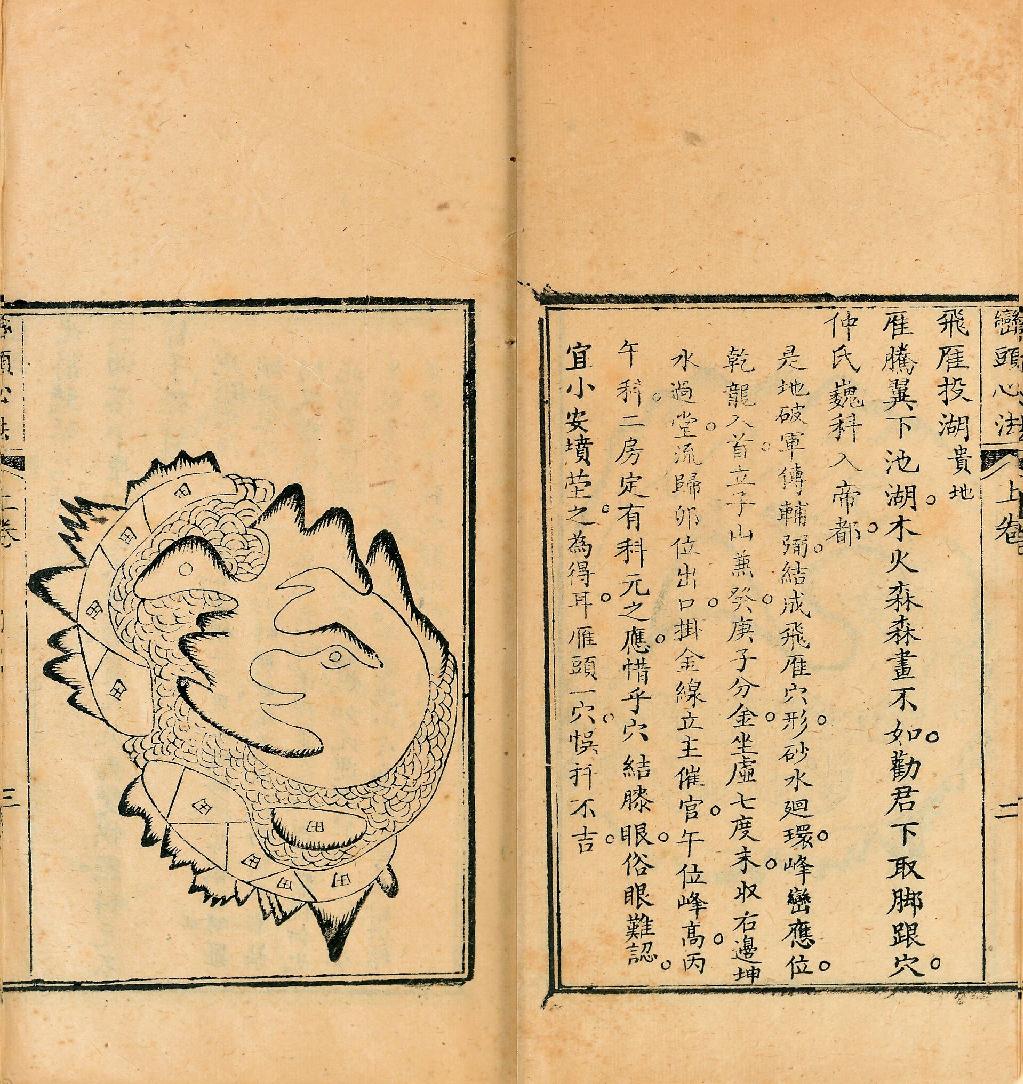 巒頭心法 上卷 二
飛雁投湖貴地
雁騰翼下池湖。木火森森畫不如。勸君下取脚跟穴。
仲氏巍科入帝都。
是地破軍傳輔弼。結成飛雁穴形。砂水廻環。峰巒應位。
乾龍入首。立子山兼癸。庚子分金。坐虛七度。末收右邊坤
水過堂。流歸卯位出口。掛金線。立主催官。午位峰高。丙
午科。二房定有科元之應。惜乎穴結膝眼。俗眼難認。
宜小安墳塋之為得耳。雁頭一穴。悞扦不吉。
田
田
田
田
田
田
田
田
田
三